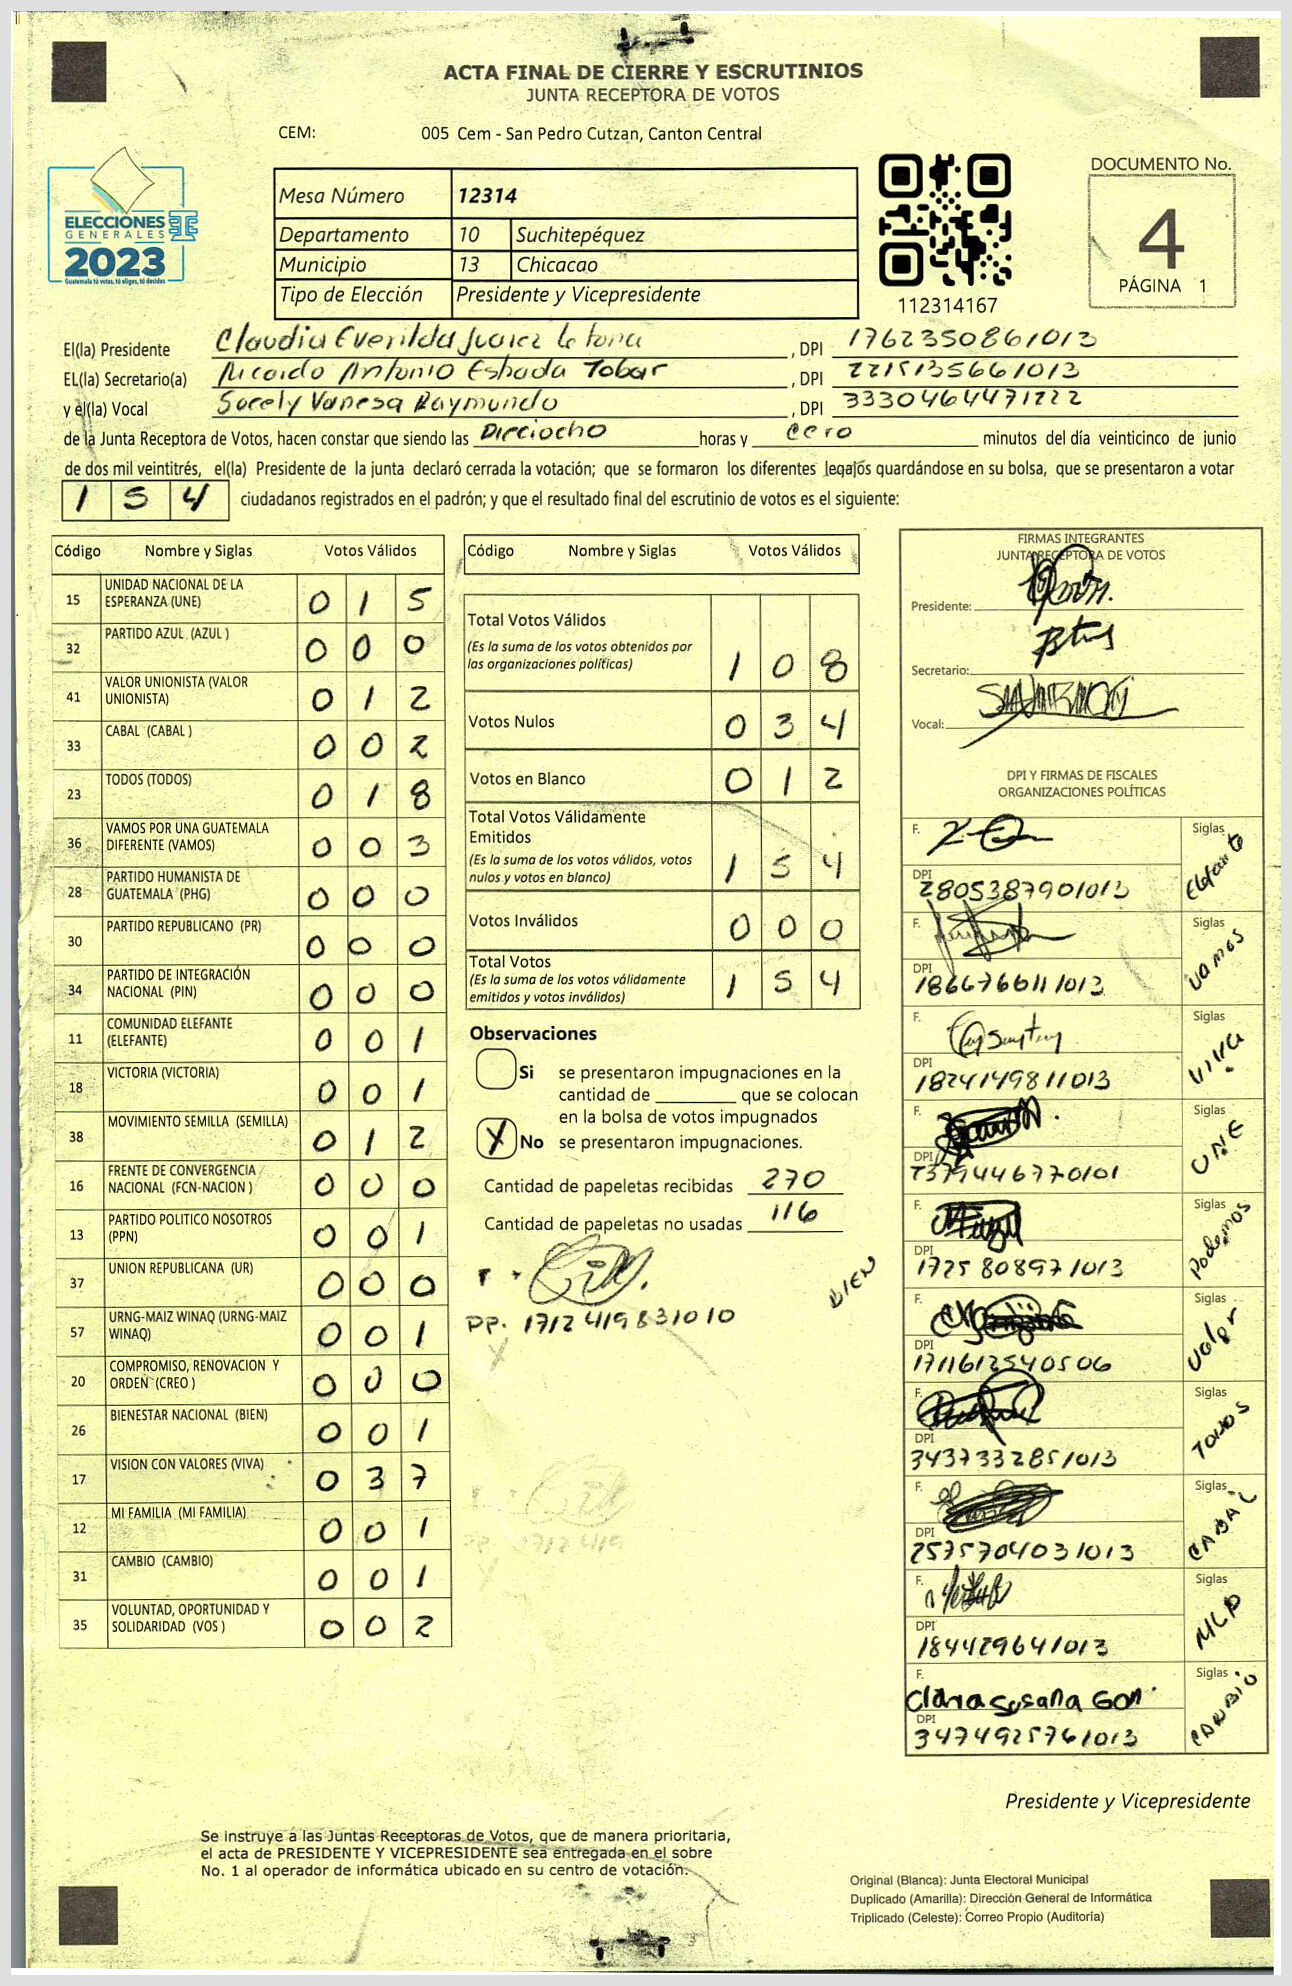 ACTA FINAL DE CIERRE Y ESCRUTINIOS
JUNTA RECEPTORA DE VOTOS
CEM: 005 Cem - San Pedro Cutzan, Canton Central
ELECCIONES
GENERALES
2023
Guatemala tú votas, tú eliges, tú decides
Mesa Número 12314
Departamento 10 Suchitepéquez
Municipio 13 Chicacao
Tipo de Elección Presidente y Vicepresidente
112314167
DOCUMENTO No.
4
PÁGINA 1
El(la) Presidente Claudia Everilda Juarez Letona, DPI 1762350861013
EL(la) Secretario(a) Ricardo Antonio Estrada Tobar, DPI 2215135661013
y el(la) Vocal Sucely Vanesa Raymundo, DPI 3330464471222
de la Junta Receptora de Votos, hacen constar que siendo las Dieciocho horas y cero minutos del día veinticinco de junio
de dos mil veintitrés, el(la) Presidente de la junta declaró cerrada la votación; que se formaron los diferentes legajos guardándose en su bolsa, que se presentaron a votar
1 5 4 ciudadanos registrados en el padrón; y que el resultado final del escrutinio de votos es el siguiente:
Código Nombre y Siglas Votos Válidos
15 UNIDAD NACIONAL DE LA ESPERANZA (UNE) 0 1 5
32 PARTIDO AZUL (AZUL ) 0 0 0
41 VALOR UNIONISTA (VALOR UNIONISTA) 0 1 2
33 CABAL (CABAL ) 0 0 2
23 TODOS (TODOS) 0 1 8
36 VAMOS POR UNA GUATEMALA DIFERENTE (VAMOS) 0 0 3
28 PARTIDO HUMANISTA DE GUATEMALA (PHG) 0 0 0
30 PARTIDO REPUBLICANO (PR) 0 0 0
34 PARTIDO DE INTEGRACIÓN NACIONAL (PIN) 0 0 0
11 COMUNIDAD ELEFANTE (ELEFANTE) 0 0 1
18 VICTORIA (VICTORIA) 0 0 1
38 MOVIMIENTO SEMILLA (SEMILLA) 0 1 2
16 FRENTE DE CONVERGENCIA NACIONAL (FCN-NACION ) 0 0 0
13 PARTIDO POLITICO NOSOTROS (PPN) 0 0 1
37 UNION REPUBLICANA (UR) 0 0 0
57 URNG-MAIZ WINAQ (URNG-MAIZ WINAQ) 0 0 1
20 COMPROMISO, RENOVACION Y ORDEN (CREO ) 0 0 0
26 BIENESTAR NACIONAL (BIEN) 0 0 1
17 VISION CON VALORES (VIVA) 0 3 7
12 MI FAMILIA (MI FAMILIA) 0 0 1
31 CAMBIO (CAMBIO) 0 0 1
35 VOLUNTAD, OPORTUNIDAD Y SOLIDARIDAD (VOS ) 0 0 2
Código Nombre y Siglas Votos Válidos
Total Votos Válidos
(Es la suma de los votos obtenidos por
las organizaciones políticas) 1 0 8
Votos Nulos 0 3 4
Votos en Blanco 0 1 2
Total Votos Válidamente
Emitidos
(Es la suma de los votos válidos, votos
nulos y votos en blanco) 1 5 4
Votos Inválidos 0 0 0
Total Votos
(Es la suma de los votos válidamente
emitidos y votos inválidos) 1 5 4
Observaciones
Si se presentaron impugnaciones en la
cantidad de ________ que se colocan
en la bolsa de votos impugnados
X No se presentaron impugnaciones.
Cantidad de papeletas recibidas 270
Cantidad de papeletas no usadas 116
BIEN
DP. 1712419831010
FIRMAS INTEGRANTES
JUNTA RECEPTORA DE VOTOS
Presidente:
Secretario:
Vocal:
DPI Y FIRMAS DE FISCALES
ORGANIZACIONES POLÍTICAS
F. Siglas Elefante
DPI 2805387901013
F. Siglas Vamos
DPI 1866766111013
F. Siglas VIVA
DPI 1824149811013
F. Siglas UNE
DPI 2379446770101
F. Siglas Podemos
DPI 1725808971013
F. Siglas Valor
DPI 1711612540506
F. Siglas TODOS
DPI 3437332851013
F. Siglas CABAL
DPI 2575704031013
F. Siglas MLP
DPI 184429641013
F. Clara Susana Gon. Siglas CAMBIO
DPI 3474925761013
Presidente y Vicepresidente
Se instruye a las Juntas Receptoras de Votos, que de manera prioritaria,
el acta de PRESIDENTE Y VICEPRESIDENTE sea entregada en el sobre
No. 1 al operador de informática ubicado en su centro de votación.
Original (Blanca): Junta Electoral Municipal
Duplicado (Amarilla): Dirección General de Informática
Triplicado (Celeste): Correo Propio (Auditoría)